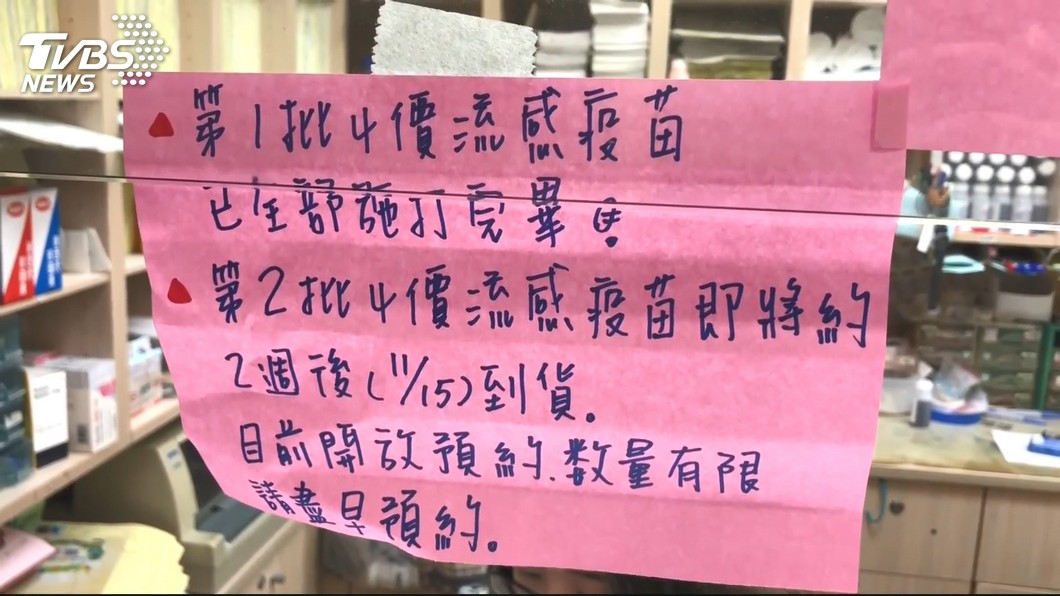 TVBS
NEWS
第1批4價流感疫苗
已全部施打完畢!
第2批4價流感疫苗即將約
2週後(11/15)到貨。
目前開放預約.數量有限
請盡早預約。